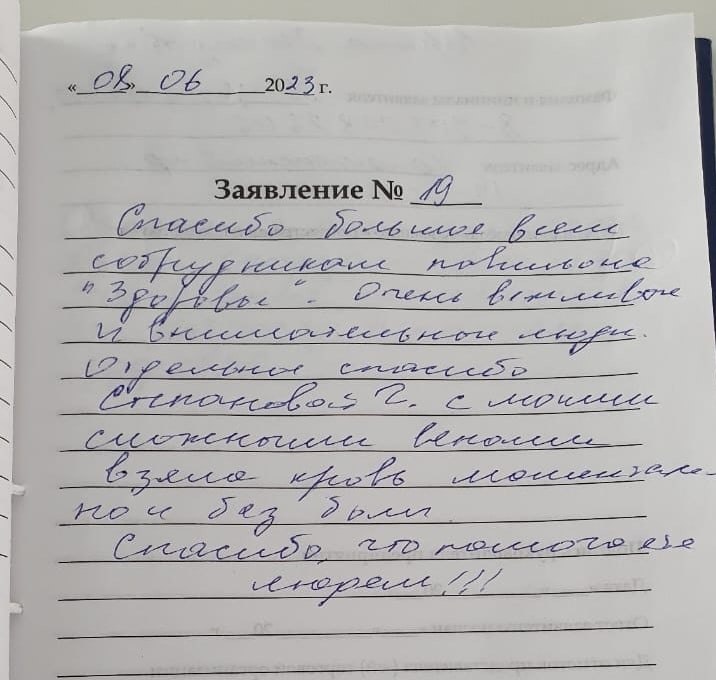 « 08 » 06 2023 г.
Заявление № 19
Спасибо большое всем
сотрудникам павильона
"Здоровье". Очень вежливые
и внимательные люди.
Отдельное спасибо
Степановой Г. с моими
сложными венами
взяла кровь моментале-
но и без боли.
Спасибо, что помогаете
людям!!!